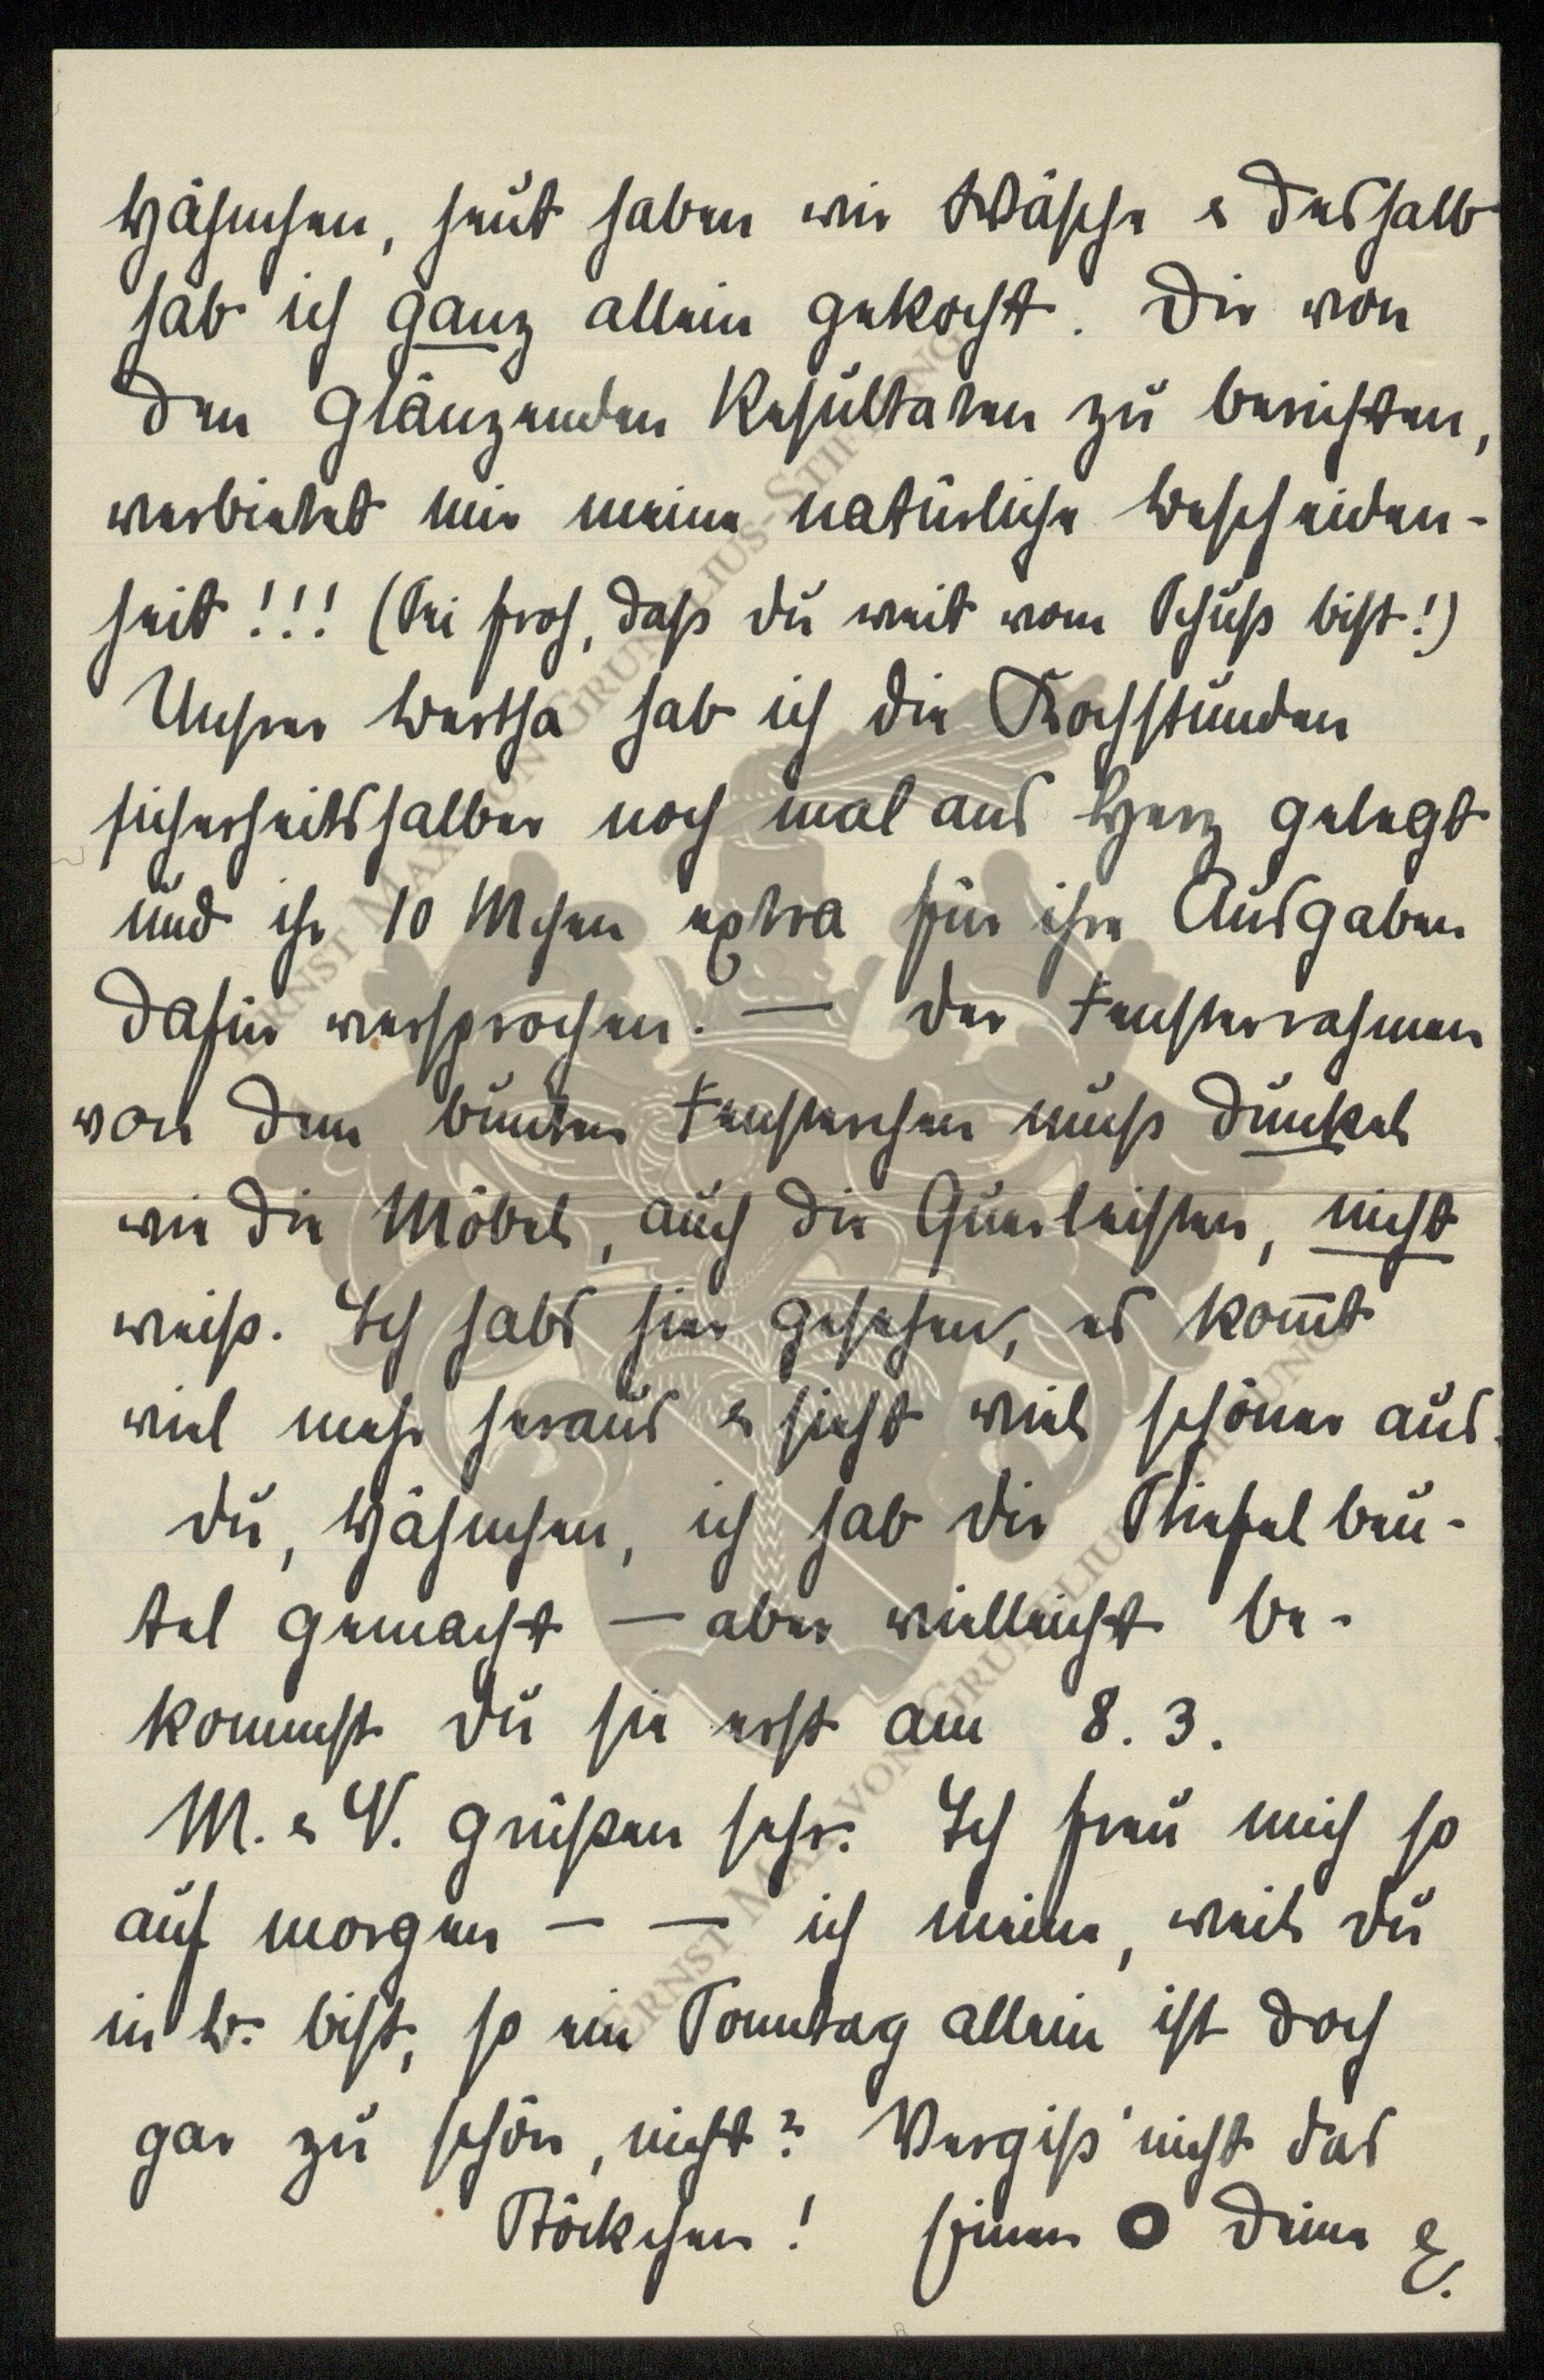 Hähnchen, heut haben wir Wäsche & deshalb
hab ich ganz allein gekocht. Dir von
den glänzenden Resultaten zu berichten,
verbietet mir meine natürliche Bescheiden-
heit!!! (Sei froh, daß Du weit vom Schuß bist!)
Unsrer Bertha hab ich die Kochstunden
sicherheitshalber noch mal ans Herz gelegt
und ihr 10 Mchen extra für ihre Ausgaben
dafür versprochen. — Der Fensterrahmen
von dem bunten Fensterchen muß dunkel
wie die Möbel, auch die Querleisten, nicht
weiß. Ich habs hier gesehen, es kom̅t
viel mehr heraus & sieht viel schöner aus.
Du, Hähnchen, ich hab die Stiefelbeu-
tel gemacht — aber vielleicht be-
kommst Du sie erst am 8. 3.
M. & V. grüßen sehr. Ich freu mich so
auf morgen — — ich meine, weil Du
in B. bist, so ein Sonntag allein ist doch
gar zu schön, nicht? Vergiß' nicht das
Stöckchen! O Deine E.
ERNST MAX VON GRUNELIUS-STIFTUNG
ERNST MAX VON GRUNELIUS-STIFTUNG